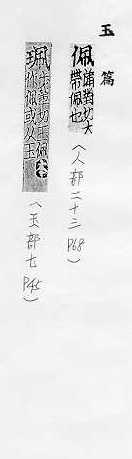 玉篇
佩蒲對切大帶佩也
(人部二十三 P68)
珮步輩切玉佩也本作佩或从玉
(玉部七 P45)